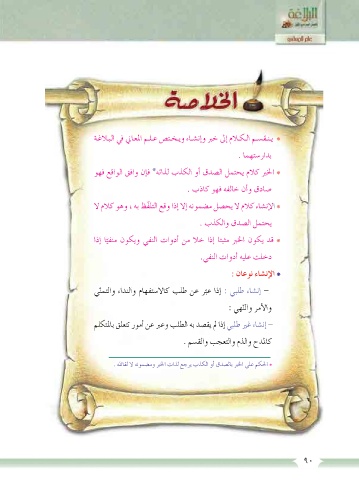 البلاغة
علم المعاني
الخلاصة
* ينقسم الكلام إلى خبر وإنشاء ويختص علم المعاني في البلاغة
بدارستهما .
* الخبر كلام يحتمل الصدق أو الكذب لذاته* فإن وافق الواقع فهو
صادق وأن خالفه فهو كاذب .
* الإنشاء كلام لا يحصل مضمونه إلا إذا وقع التلفّظ به ، وهو كلام لا
يحتمل الصدق والكذب .
* قد يكون الخبر مثبتا إذا خلا من أدوات النفي ويكون منفيّا إذا
دخلت عليه أدوات النفي.
* الإنشاء نوعان :
– إنشاء طلبي : إذا عبّر عن طلب كالاستفهام والنداء، والتمنّي
والأمر والنّهي :
– إنشاء غير طلبي إذا لم يقصد به الطلب وعبر عن أمور تتعلق بالمتكلم
كالمدح والذم والتعجب والقسم .
* الحكم على الخبر بالصدق أو الكذب يرجع لذات الخبر ومضمونه لا لقائله .
٩٠